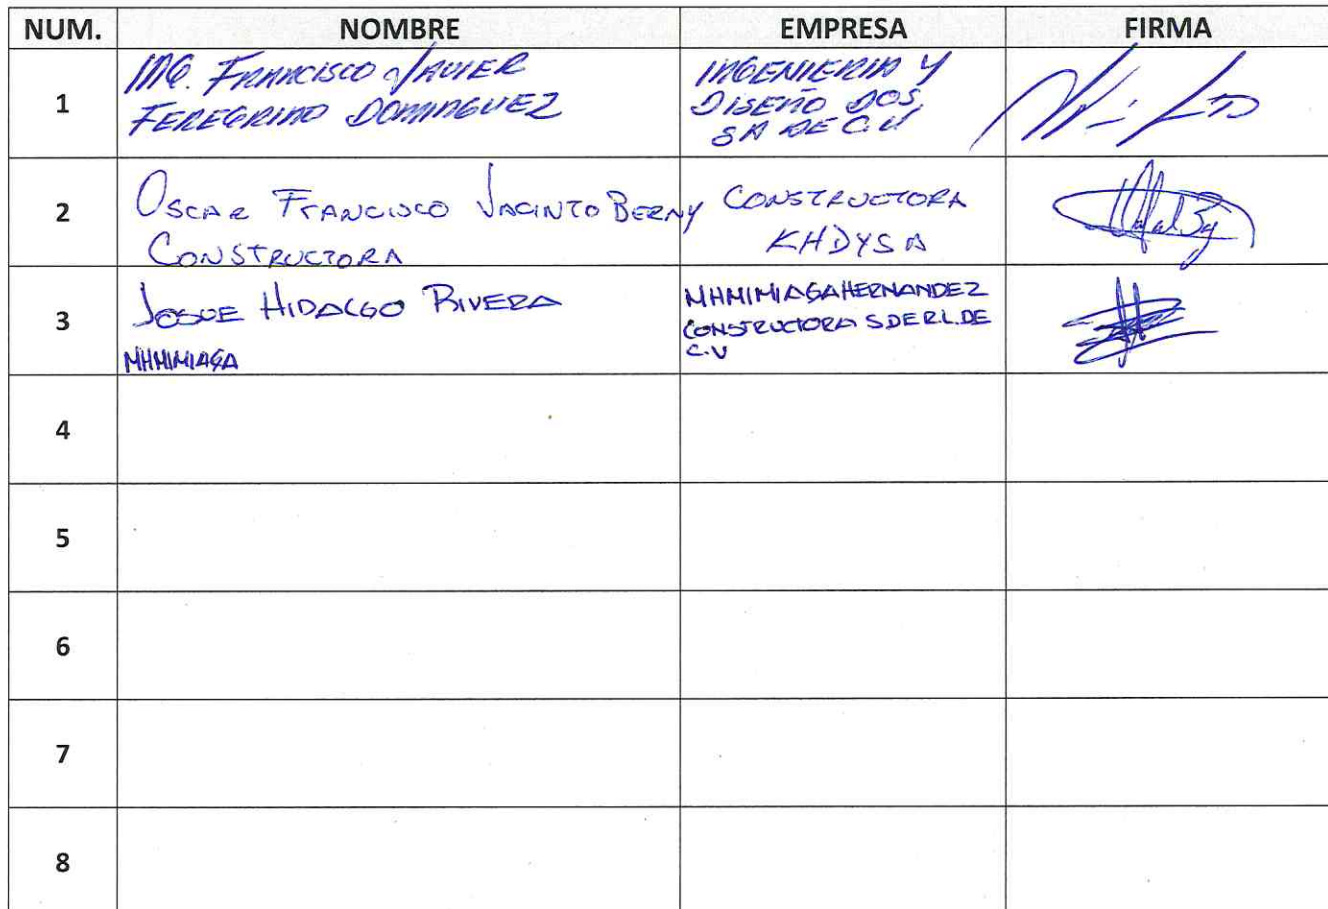 NUM. NOMBRE EMPRESA FIRMA
1
ING. FRANCISCO JAVIER
FEREGRINO DOMINGUEZ
INGENIERIA Y
DISEÑO DOS,
SA DE C.V
2
OSCAR FRANCISCO JACINTO BERNY
CONSTRUCTORA
CONSTRUCTORA
KHDYSA
3
JOSUE HIDALGO RIVERA
MHMIMIAGA
MHMIMIAGAHERNANDEZ
CONSTRUCTORA S DE R.L. DE
C.V
4
5
6
7
8